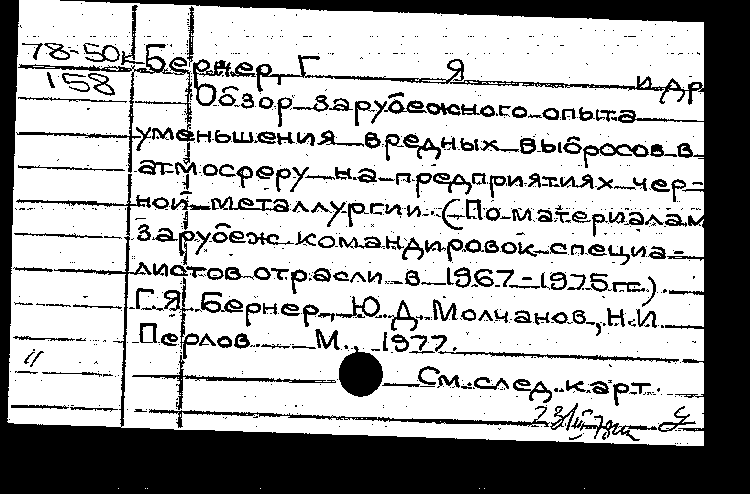 78-50к Бернер, Г Я и др
158
Обзор зарубежного опыта
уменьшения вредных выбросов в
атмосферу на предприятиях чер-
ной металлургии. (По материалам
зарубеж командировок специа-
листов отрасли в 1967-1975гг.).
Г.Я Бернер, Ю.Д. Молчанов, Н.И.
Перлов М., 1977.
См. след. карт.